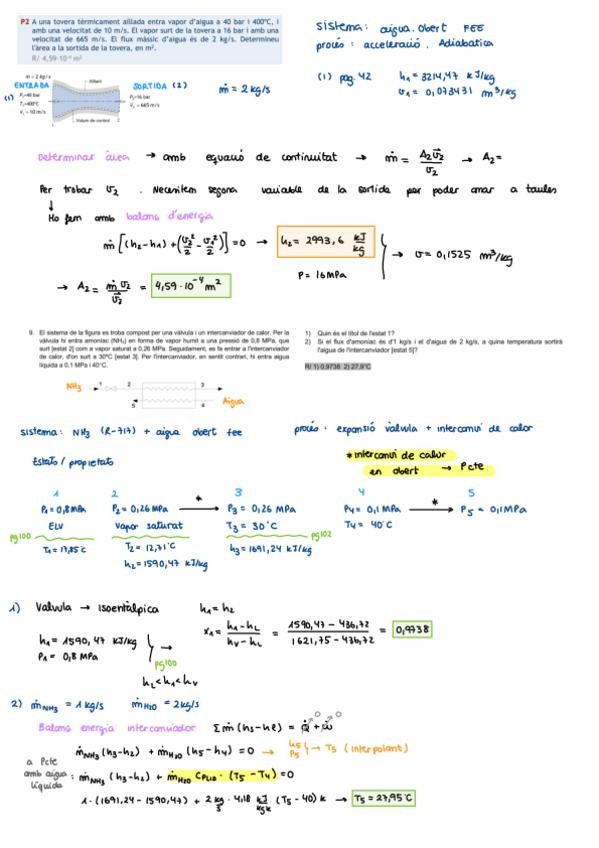 P2 A una tovera tèrmicament aïllada entra vapor d'aigua a 40 bar i 400ºC, i
amb una velocitat de 10 m/s. El vapor surt de la tovera a 16 bar i amb una
velocitat de 665 m/s. El flux màssic d'aigua és de 2 kg/s. Determineu
l'àrea a la sortida de la tovera, en m².
R/ 4,59·10⁻⁴ m²
sistema: aigua. Obert FEE
procés: acceleració. Adiabàtica
ṁ = 2 kg/s
Aïllant
ENTRADA
(1)
P₁=40 bar
T₁=400ºC
V₁ = 10 m/s
SORTIDA (2)
P₂=16 bar
V₂ = 665 m/s
Volum de control
1
2
ṁ = 2 kg/s
(1) pag. 42
h₁ = 3214,47 kJ/kg
v₁ = 0,073431 m³/kg
Determinar àrea → amb equació de continuitat → ṁ = A₂v⃗₂/v₂ → A₂=
Per trobar v₂. Necesitem segona variable de la sortida per poder anar a taules
↓
Ho fem amb balanç d'energia
ṁ [(h₂-h₁) + (v₂²/2 - v₁²/2)] = 0 → h₂ = 2993,6 kJ/kg
P = 16MPa
→ v = 0,1525 m³/kg
→ A₂ = ṁ v₂/v⃗₂ = 4,59·10⁻⁴ m²
9. El sistema de la figura es troba compost per una vàlvula i un intercanviador de calor. Per la
vàlvula hi entra amoníac (NH₃) en forma de vapor humit a una pressió de 0,8 MPa, que
surt [estat 2] com a vapor saturat a 0,26 MPa. Seguidament, es fa entrar a l'intercanviador
de calor, d'on surt a 30ºC [estat 3]. Per l'intercanviador, en sentit contrari, hi entra aigua
líquida a 0,1 MPa i 40ºC.
1) Quin és el títol de l'estat 1?
2) Si el flux d'amoníac és d'1 kg/s i el d'aigua de 2 kg/s, a quina temperatura sortirà
l'aigua de l'intercanviador [estat 5]?
R/ 1) 0,9738 2) 27,9ºC
NH₃ → 1 2 3
5 4 Aigua
sistema: NH₃ (R-717) + aigua obert fee
procés: expansió valvula + intercanvi de calor
Estats / propietats
* intercanvi de calor
en obert → Pcte
1
P₁=0,8MPa
ELV
pg100
T₁=17,85ºC
2
P₂=0,26 MPa
Vapor saturat
T₂ = 12,71ºC
h₂=1590,47 kJ/kg
*
3
P₃ = 0,26 MPa
T₃ = 30ºC
pg102
h₃=1691,24 kJ/kg
4
P₄=0,1 MPa
T₄= 40ºC
*
5
P₅ = 0,1MPa
1) Valvula → Isoentàlpica
h₁=h₂
h₁= 1590,47 kJ/kg
P₁ = 0,8 MPa
→
pg100
hL<h₁<hv
x₁ = (h₁-hL)/(hv-hL) = (1590,47-436,72)/(1621,75-436,72) = 0,9738
2) ṁNH₃ = 1 kg/s ṁH₂O = 2kg/s
Balanç energia intercanviador Σṁ(hs-he) = Q̇ + Ẇ
0 0
ṁNH₃ (h₃-h₂) + ṁH₂O (h₅-h₄) = 0 → h₅ P₅ } → T₅ (interpolant)
a Pcte
amb aigua
líquida : ṁNH₃ (h₃-h₂) + ṁH₂O CpH₂O · (T₅-T₄)=0
1·(1691,24-1590,47) + 2 kg/s · 4,18 kJ/kgK (T₅-40)K → T₅=27,95ºC